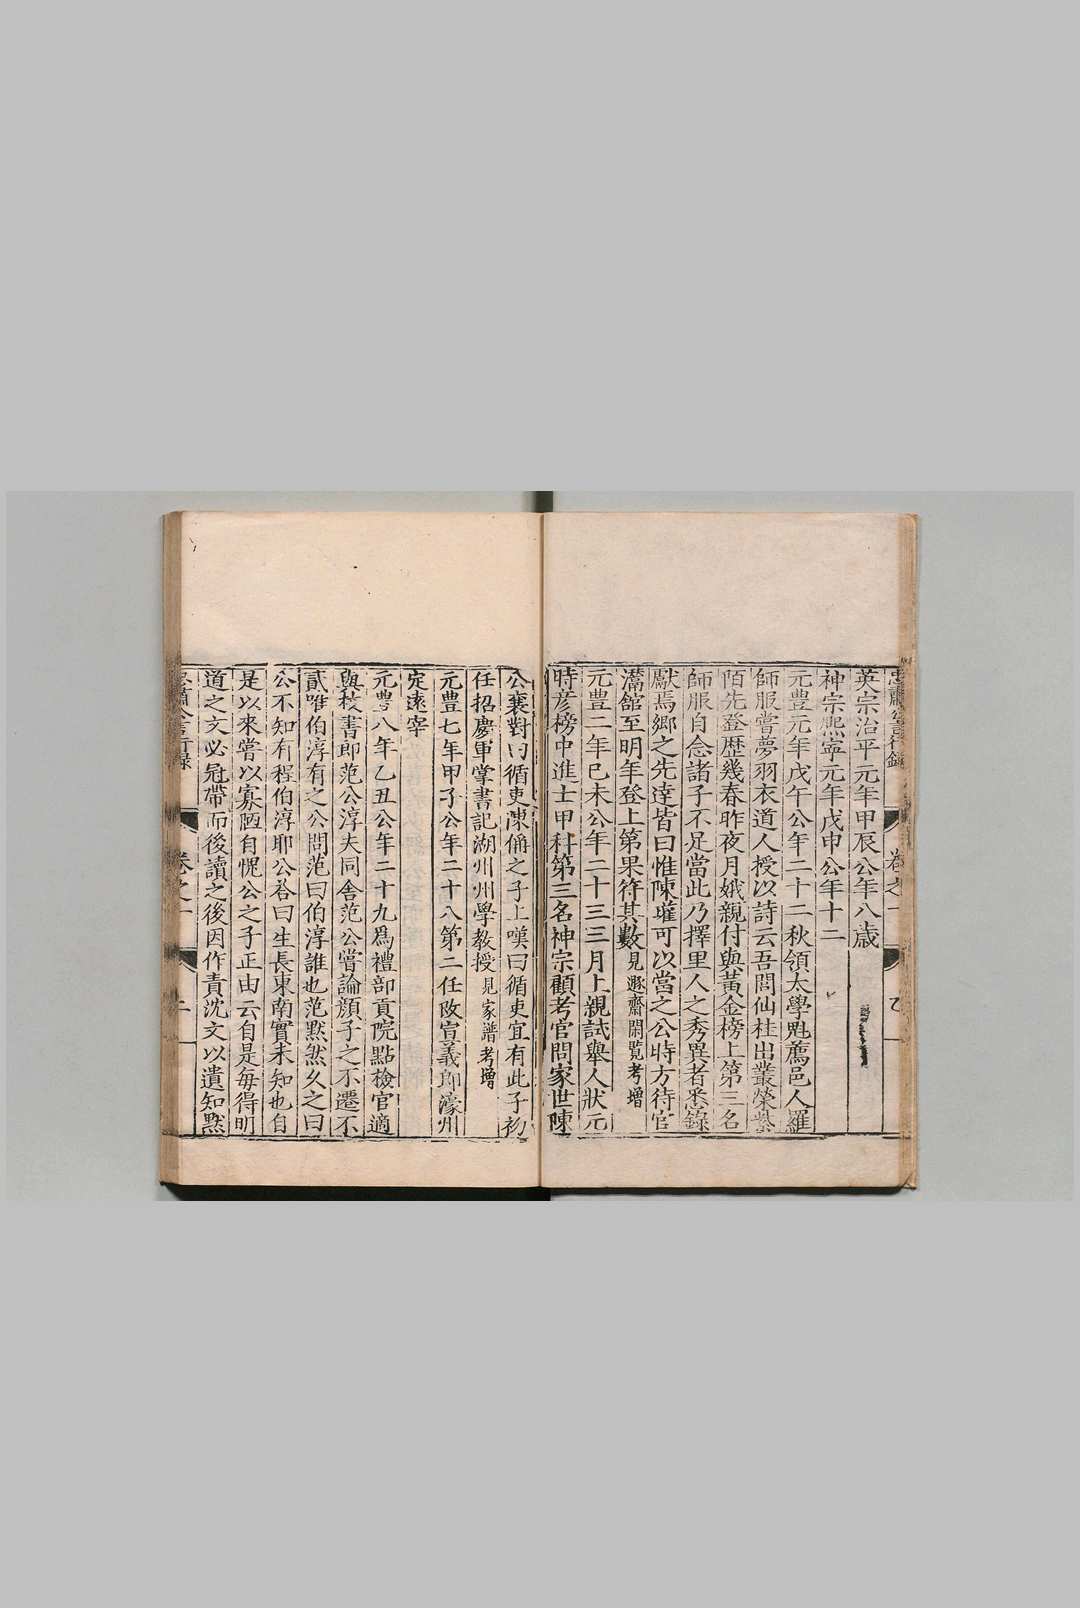 忠肅公言行錄 卷之一
英宗治平元年甲辰公年八歲
神宗熙寧元年戊申公年十二
元豊元年戊午公年二十二秋領太學魁薦邑人羅
師服嘗夢羽衣道人授以詩云吾閭仙桂出叢榮紫
陌先登歷幾春昨夜月娥親付與黃金榜上第三名
師服自念諸子不足當此乃擇里人之秀異者悉錄
獻焉鄉之先達皆曰惟陳瓘可以當之公時方待官
灊館至明年登上第果符其數見遯齋閑覽考增
元豊二年己未公年二十三三月上親試舉人狀元
時彦榜中進士甲科第三名神宗顧考官問家世陳
公襄對曰循吏陳偁之子上嘆曰循吏宜有此子初
任招慶軍掌書記湖州州學教授見家譜考增
元豊七年甲子公年二十八第二任改宣義郎濠州
定遠宰
元豊八年乙丑公年二十九爲禮部貢院點檢官適
與校書郎范公淳夫同舍范公嘗論顏子之不遷不
貳唯伯淳有之公問范曰伯淳誰也范默然久之曰
公不知有程伯淳耶公荅曰生長東南實未知也自
是以來嘗以寡陋自愧公之子正由云自是每得明
道之文必冠帶而後讀之後因作責沈文以遺知默
忠肅公言行録 卷之一 二